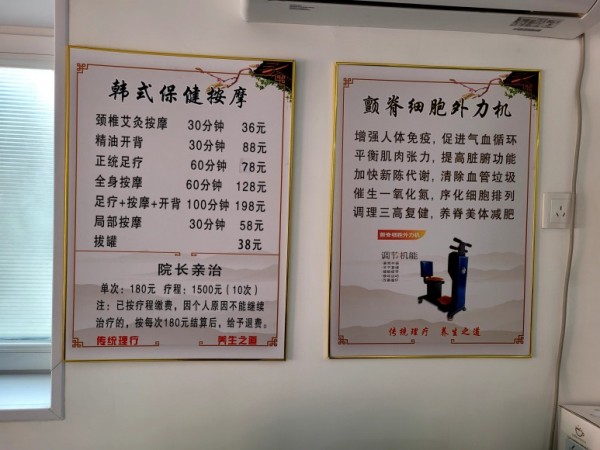 韩式保健按摩
颈椎艾灸按摩 30分钟 36元
精油开背 30分钟 88元
正统足疗 60分钟 78元
全身按摩 60分钟 128元
足疗+按摩+开背 100分钟 198元
局部按摩 30分钟 58元
拔罐 38元
院长亲治
单次：180元 疗程：1500元（10次）
注：已按疗程缴费，因个人原因不能继续
治疗的，按每次180元结算后，给予退费。
传统理疗 养生之道
颤脊细胞外力机
增强人体免疫，促进气血循环
平衡肌肉张力，提高脏腑功能
加快新陈代谢，清除血管垃圾
催生一氧化氮，序化细胞排列
调理三高复健，养脊美体减肥
颤脊细胞外力机
调节机能
传统理疗 养生之道